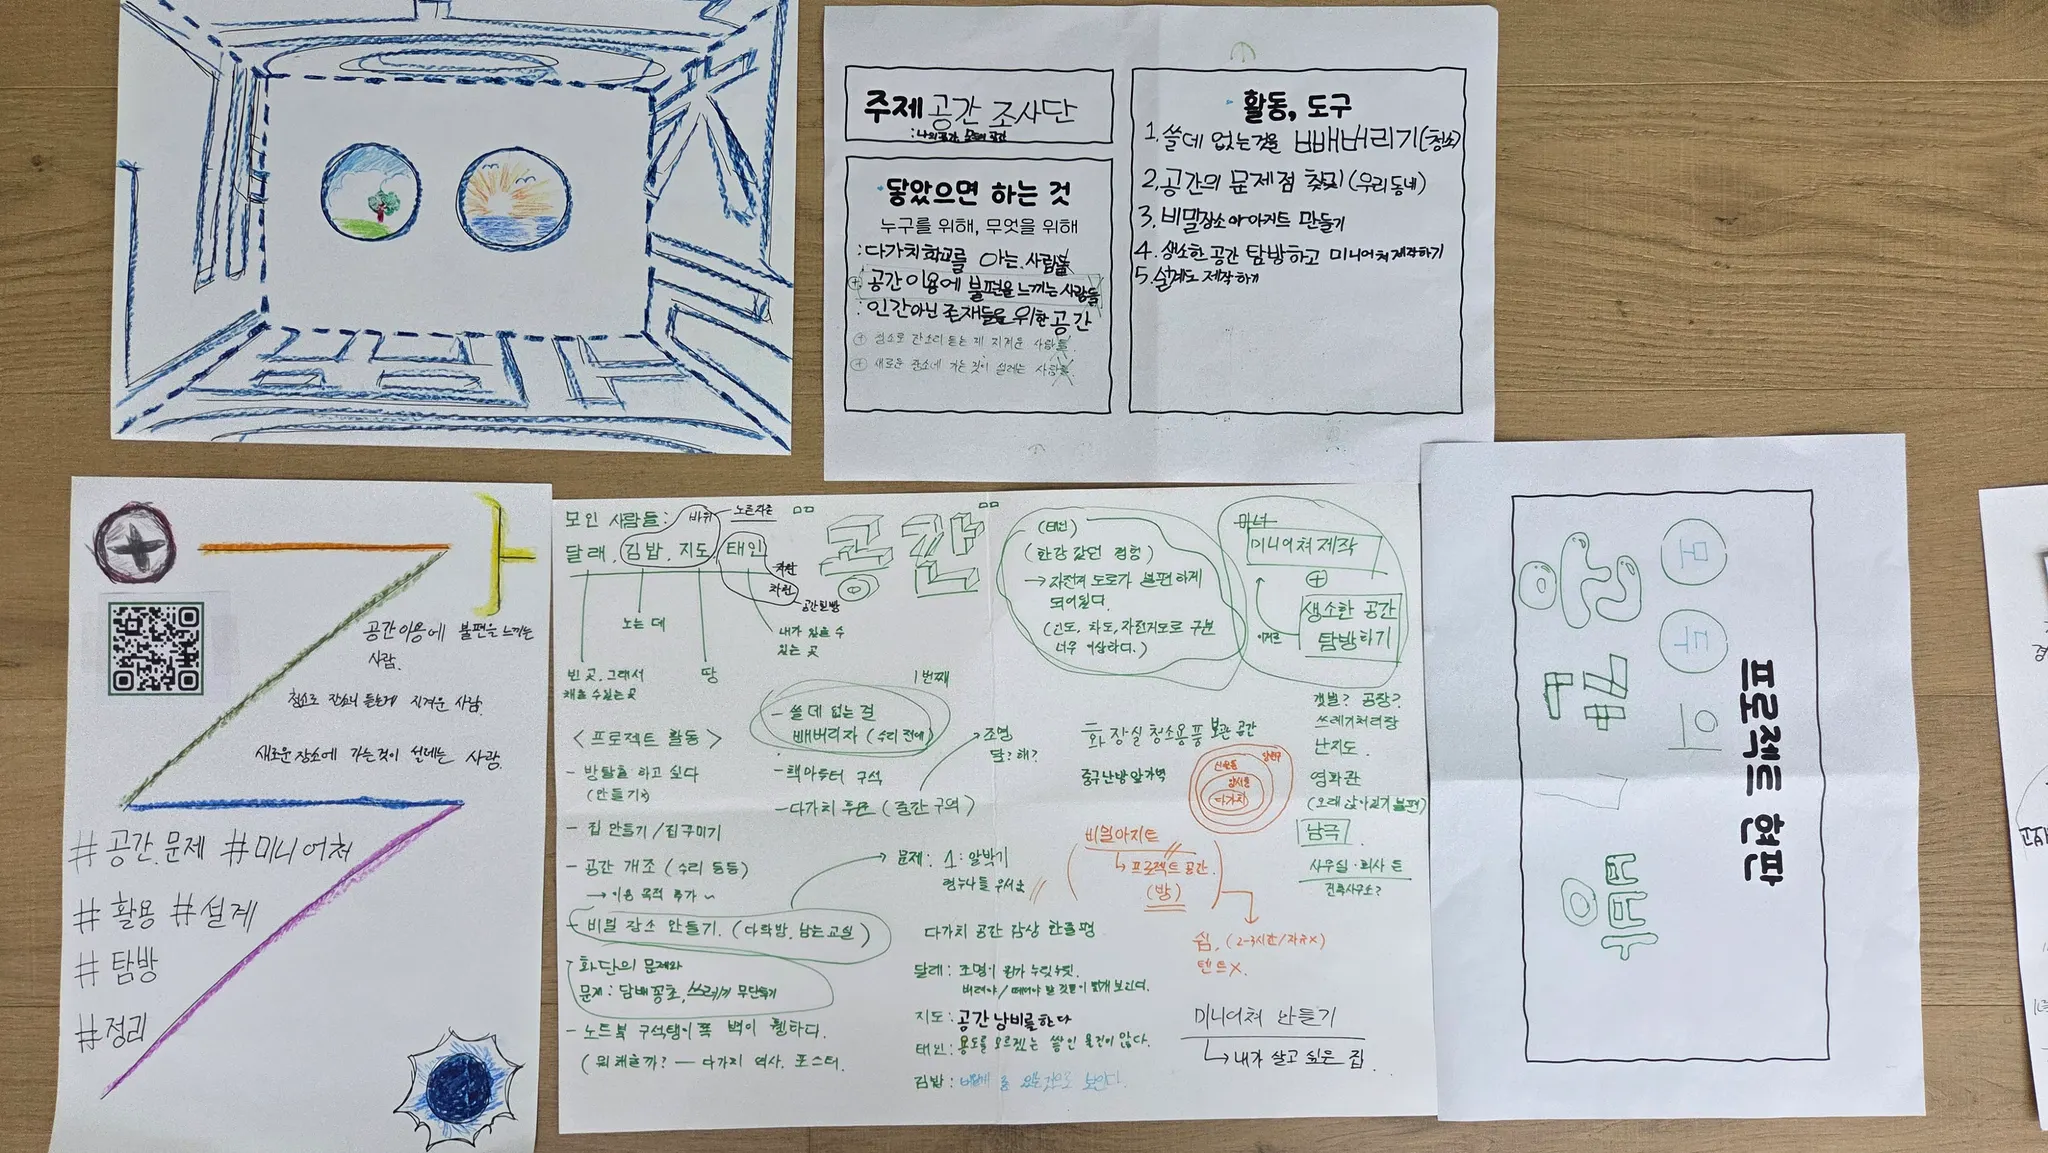 주제 공간 조사단
닿았으면 하는 것
누구를 위해, 무엇을 위해
: 다가치학교를 아는 사람들
+ 공간 이용에 불편을 느끼는 사람들
: 인간 아닌 존재들을 위한 공간
+ 청소로 잔소리 듣는 게 지겨운 사람들.
+ 새로운 장소에 가는 것이 설레는 사람들.
활동, 도구
1. 쓸데 없는것을 빼버리기(청소)
2. 공간의 문제점 찾기(우리동네)
3. 비밀장소 아지트 만들기
4. 생소한 공간 탐방하고 미니어처 제작하기
5. 설계도 제작하기
공간이용에 불편을 느끼는
사람.
청소로 잔소리 듣는게 지겨운 사람.
새로운 장소에 가는것이 설레는 사람.
#공간.문제 #미니어처
#활용 #설계
#탐방
#정리
모인 사람들: 바위
달래. 김밥. 지도. 태인
공간
노는 데
내가 있을 수
있는 곳
빈 곳. 그래서
채울 수 있는 곳
땅
<프로젝트 활동>
- 방탈출 하고 싶다
(만들기)
- 집 만들기 / 집꾸미기
- 공간 개조 (수리 등등)
→ 이용 목적 추가 ~
- 비밀 장소 만들기. (다락방, 남는교실)
- 화단의 문제와
문제: 담배꽁초, 쓰레기 무단투기
- 노트북 구석탱이 쪽 벽이 휑하다.
1번째
- 쓸 데 없는 걸
빼버리자 (수리 전에)
- 책아루터 구석
조명
닭? 해?
문제: 1: 알박기
다가치 공간 감상 한줄평
달래: 조명이 뭔가 누릿누릿.
지도: 공간 낭비를 한다
태인: 용도를 모르겠는 쌓인 물건이 많다.
김밥:
(태인)
(한강 갔던 경험)
→ 자전거 도로가 불편하게
되어있다.
(인도, 차도, 자전거도로 구분
너무 이상하다.)
마녀
미니어쳐 제작
+
생소한 공간
탐방하기
화장실 청소용품 보관 공간
다가치
비밀아지트
↳ 프로젝트 공간.
(방)
쉼. (2-3시간/자유X)
텐트X.
갯벌? 공장?
쓰레기처리장
난지도.
영화관
(오래 앉아있기 불편)
남극
사무실·회사 등
건축사무소?
미니어쳐 만들기
↳ 내가 살고 싶은 집.
프로젝트 현판
모두의
공간
방